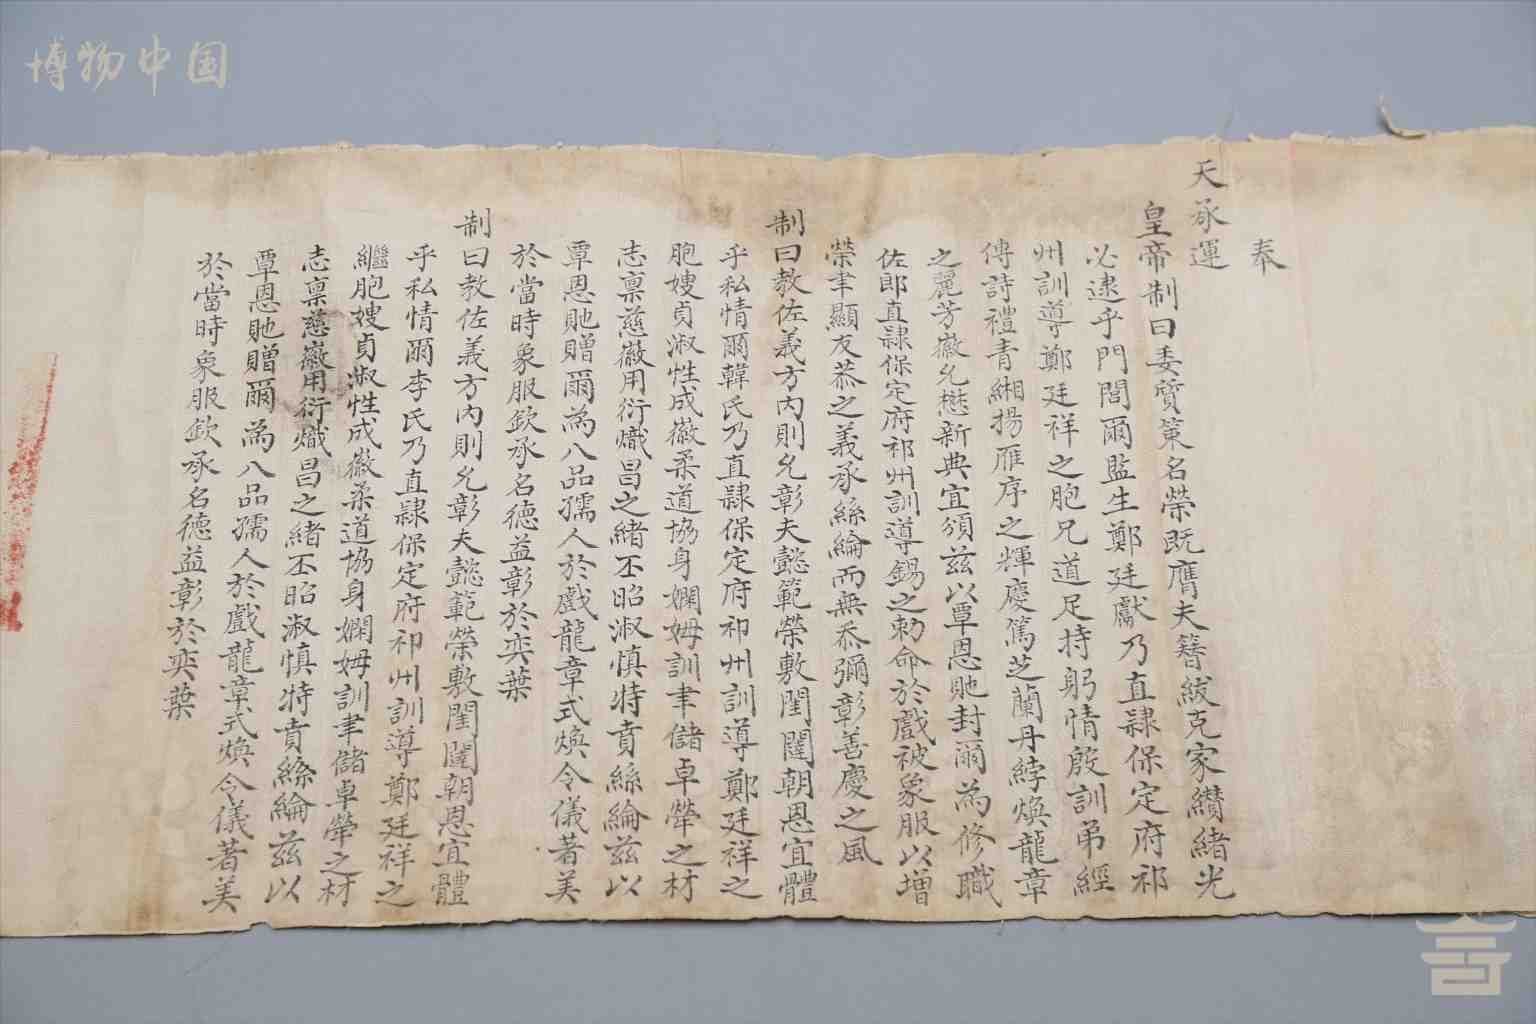 博物中国
奉
天承運
皇帝制曰委質策名榮既膺夫簪紱克家纘緒光
必逮乎門閭爾監生鄭廷獻乃直隸保定府祁
州訓導鄭廷祥之胞兄道足持躬情殷訓弟經
傳詩禮青緗揚雁序之輝慶篤芝蘭丹綍煥龍章
之麗芳徽允懋新典宜頒茲以覃恩貤封爾為修職
佐郎直隸保定府祁州訓導錫之勅命於戲被象服以增
榮聿顯友恭之義承絲綸而無忝彌彰善慶之風
制曰教佐義方內則允彰夫懿範榮敷閨闥朝恩宜體
乎私情爾韓氏乃直隸保定府祁州訓導鄭廷祥之
胞嫂貞淑性成徽柔道協身嫻姆訓聿儲卓犖之材
志稟慈徽用衍熾昌之緒丕昭淑慎特賁絲綸茲以
覃恩貤贈爾為八品孺人於戲龍章式煥令儀著美
於當時象服欽承名德益彰於奕葉
制曰教佐義方內則允彰夫懿範榮敷閨闥朝恩宜體
乎私情爾李氏乃直隸保定府祁州訓導鄭廷祥之
繼胞嫂貞淑性成徽柔道協身嫻姆訓聿儲卓犖之材
志稟慈徽用衍熾昌之緒丕昭淑慎特賁絲綸茲以
覃恩貤贈爾為八品孺人於戲龍章式煥令儀著美
於當時象服欽承名德益彰於奕葉